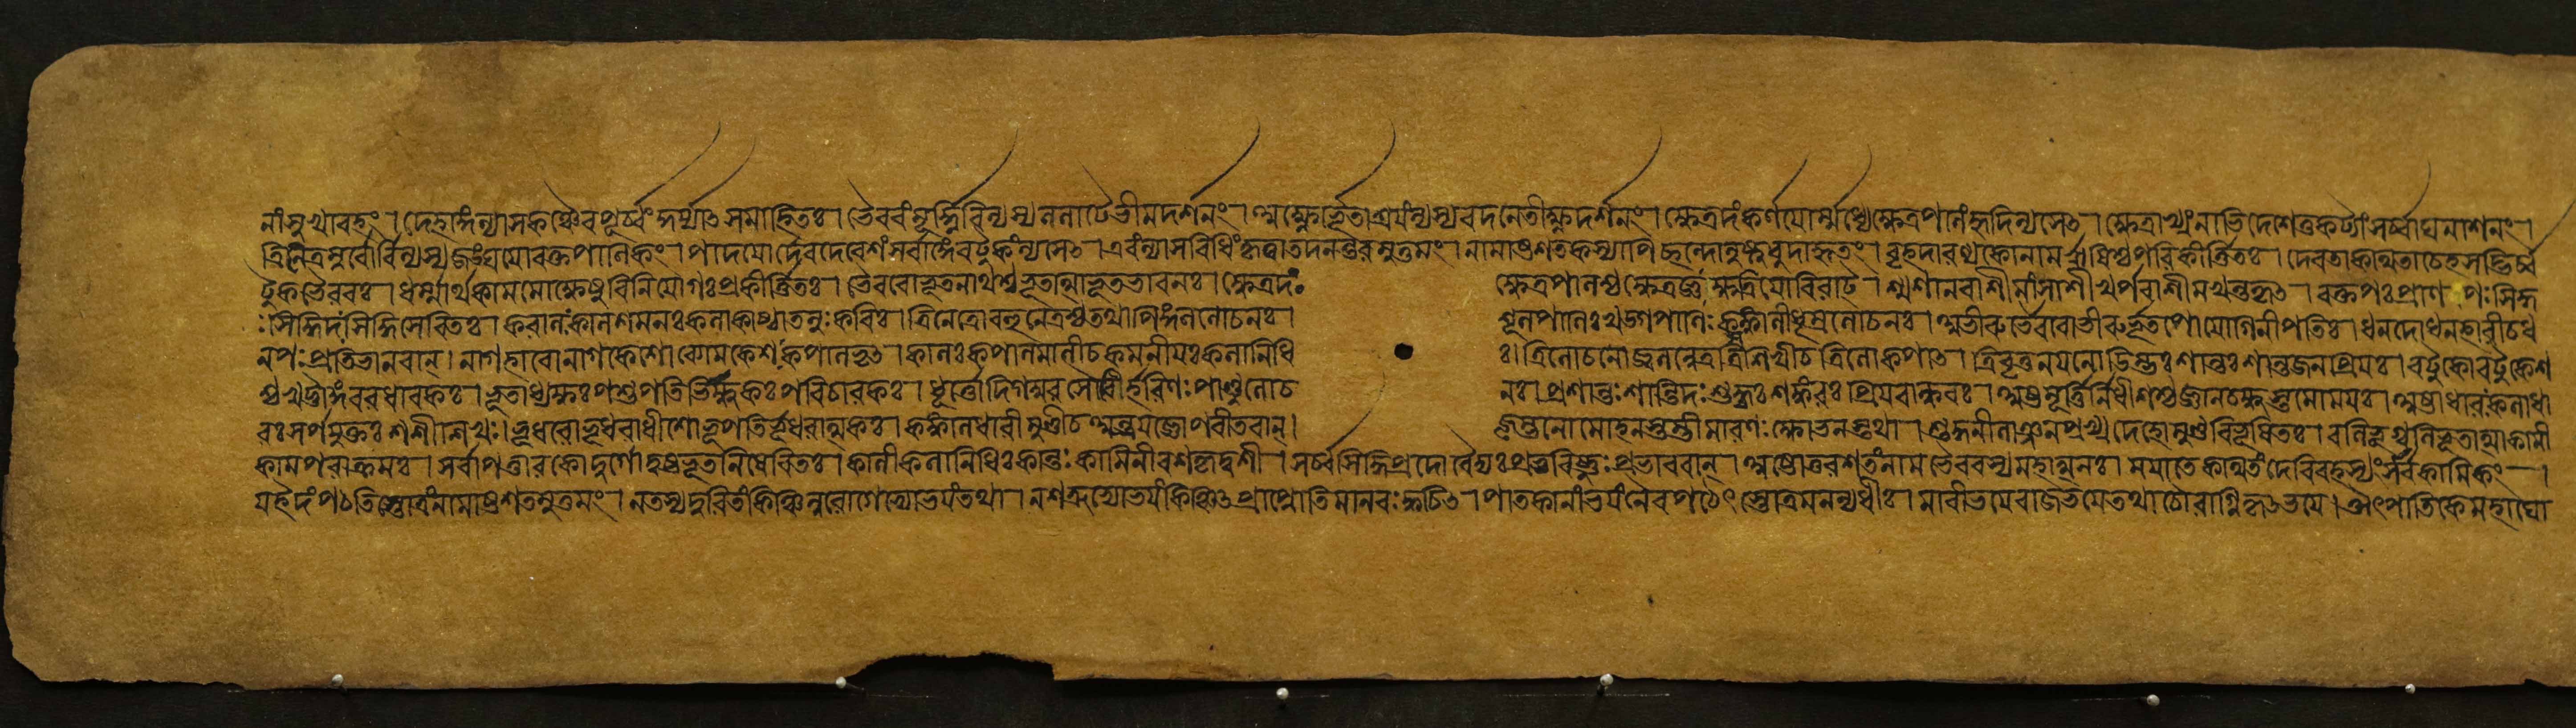 নাং সুখাবহং। দেহাঙ্গন্যাসকঞ্চৈব পূর্ব্বং কুর্য্যাৎ সমাহিতঃ। ভৈরবং মূর্দ্ধ্নি বিন্যস্য ললাটে ভীমদর্শনং। অক্ষ্ণোর্ভূতাশ্রয়ং ন্যস্য বদনে তীক্ষ্ণদর্শনং। ক্ষেত্রদং কর্ণয়োর্ম্মধ্যে ক্ষেত্রপালং হৃদি ন্যসেৎ। ক্ষেত্রাখ্যং নাভিদেশে তু কট্যাং সর্ব্বাঘনাশনং।
ত্রিনেত্রমুর্বোর্বিন্যস্য জঙ্ঘয়ো রক্তপাণিকং। পাদয়োর্দেবদেবেশং সর্বাঙ্গে বটুকং ন্যসেৎ। এবং ন্যাসবিধিং কৃত্বা তদনন্তরমুত্তমং। নামাষ্টশতকস্যাপি ছন্দোনুষ্টুবুদাহৃতং। বৃহদারণ্যকো নাম ঋষিশ্চ পরিকীর্ত্তিতঃ। দেবতা কথিতা চেহ সদ্ভির্ব্ব
টুকভৈরবঃ। ধর্ম্মার্থকামমোক্ষেষু বিনিয়োগঃ প্রকীর্ত্তিতঃ। ভৈরবো ভূতনাথশ্চ ভূতাত্মা ভূতভাবনঃ। ক্ষেত্রদঃ ক্ষেত্রপালশ্চ ক্ষেত্রজ্ঞঃ ক্ষত্রিয়ো বিরাট্। শ্মশানবাশী মাংসাশী খর্পরাশী মখান্তকৃৎ। রক্তপঃ প্রাণপঃ সিদ্ধ
ঃ সিদ্ধিদঃ সিদ্ধিসেবিতঃ। করালঃ কালশমনঃ কলাকাষ্ঠাতনুঃ কবিঃ। ত্রিনেত্রো বহুনেত্রশ্চ তথা পিঙ্গললোচনঃ। শূলপাণিঃ খড্গপাণিঃ কঙ্কালী ধূম্রলোচনঃ। অভীরুর্ভৈরবো ভীরুর্ভূতপো যোগিনীপতিঃ। ধনদো ধনহারী চ ধ
নপঃ প্রতিভানবান্। নাগহারো নাগকেশো ব্যোমকেশঃ কপালভৃৎ। কালঃ কপালমালী চ কমনীয়ঃ কলানিধি ঃ। ত্রিলোচনোজ্জ্বলন্নেত্রস্ত্রিশিখী চ ত্রিলোকপাৎ। ত্রিবৃত্তনয়নো ডিম্ভঃ শান্তঃ শান্তজনপ্রিয়ঃ। বটুকো বটুকেশ
শ্চ খট্বাঙ্গবরধারকঃ। ভূতাধ্যক্ষঃ পশুপতির্ভিক্ষুকঃ পরিচারকঃ। ধূর্ত্তো দিগম্বরঃ সৌরির্হরিণঃ পাণ্ডুলোচ নঃ। প্রশান্তঃ শান্তিদঃ শুদ্ধঃ শঙ্করঃ প্রিয়বান্ধবঃ। অষ্টমূর্ত্তির্নিধীশশ্চ জ্ঞানচক্ষুস্তমোময়ঃ। অষ্টাধারঃ কলাধা
রঃ সর্পযুক্তঃ শশীশিখঃ। ভূধরো ভূধরাধীশো ভূপতির্ভূধরাত্মকঃ। কঙ্কালধারী মুণ্ডী চ ব্যালযজ্ঞোপবীতবান্। জৃম্ভনো মোহনস্তম্ভী মারণঃ ক্ষোভনস্তথা। শুদ্ধনীলাঞ্জনপ্রখ্যদেহো মুণ্ডবিভূষিতঃ। বলিভূগ্বলিভূতাত্মা কামী
কামপরাক্রমঃ। সর্বাপত্তারকো দুর্গো দুষ্টভূতনিষেবিতঃ। কালী কলানিধিঃ কান্তঃ কামিনীবশকৃদ্বশী। সর্ব্বসিদ্ধিপ্রদো বৈদ্যঃ প্রভবিষ্ণুঃ প্রভাববান্। অষ্টোত্তরশতং নাম ভৈরবস্য মহাত্মনঃ। ময়া তে কথিতং দেবি রহস্যং সর্বকামিকং।
য ইদং পঠতি স্তোত্রং নামাষ্টশতমুত্তমং। ন তস্য দুরিতং কিঞ্চিন্নরোগেভ্যো ভয়ং তথা। ন শত্রুভ্যো ভয়ং কিঞ্চিৎ প্রাপ্নোতি মানবঃ ক্বচিৎ। পাতকানাং ভয়ং নৈব পঠেৎ স্তোত্রমনন্যধীঃ। মারীভয়ে রাজভয়ে তথা চৌরাগ্নিজে ভয়ে। ঔৎপাতিকে মহাঘো